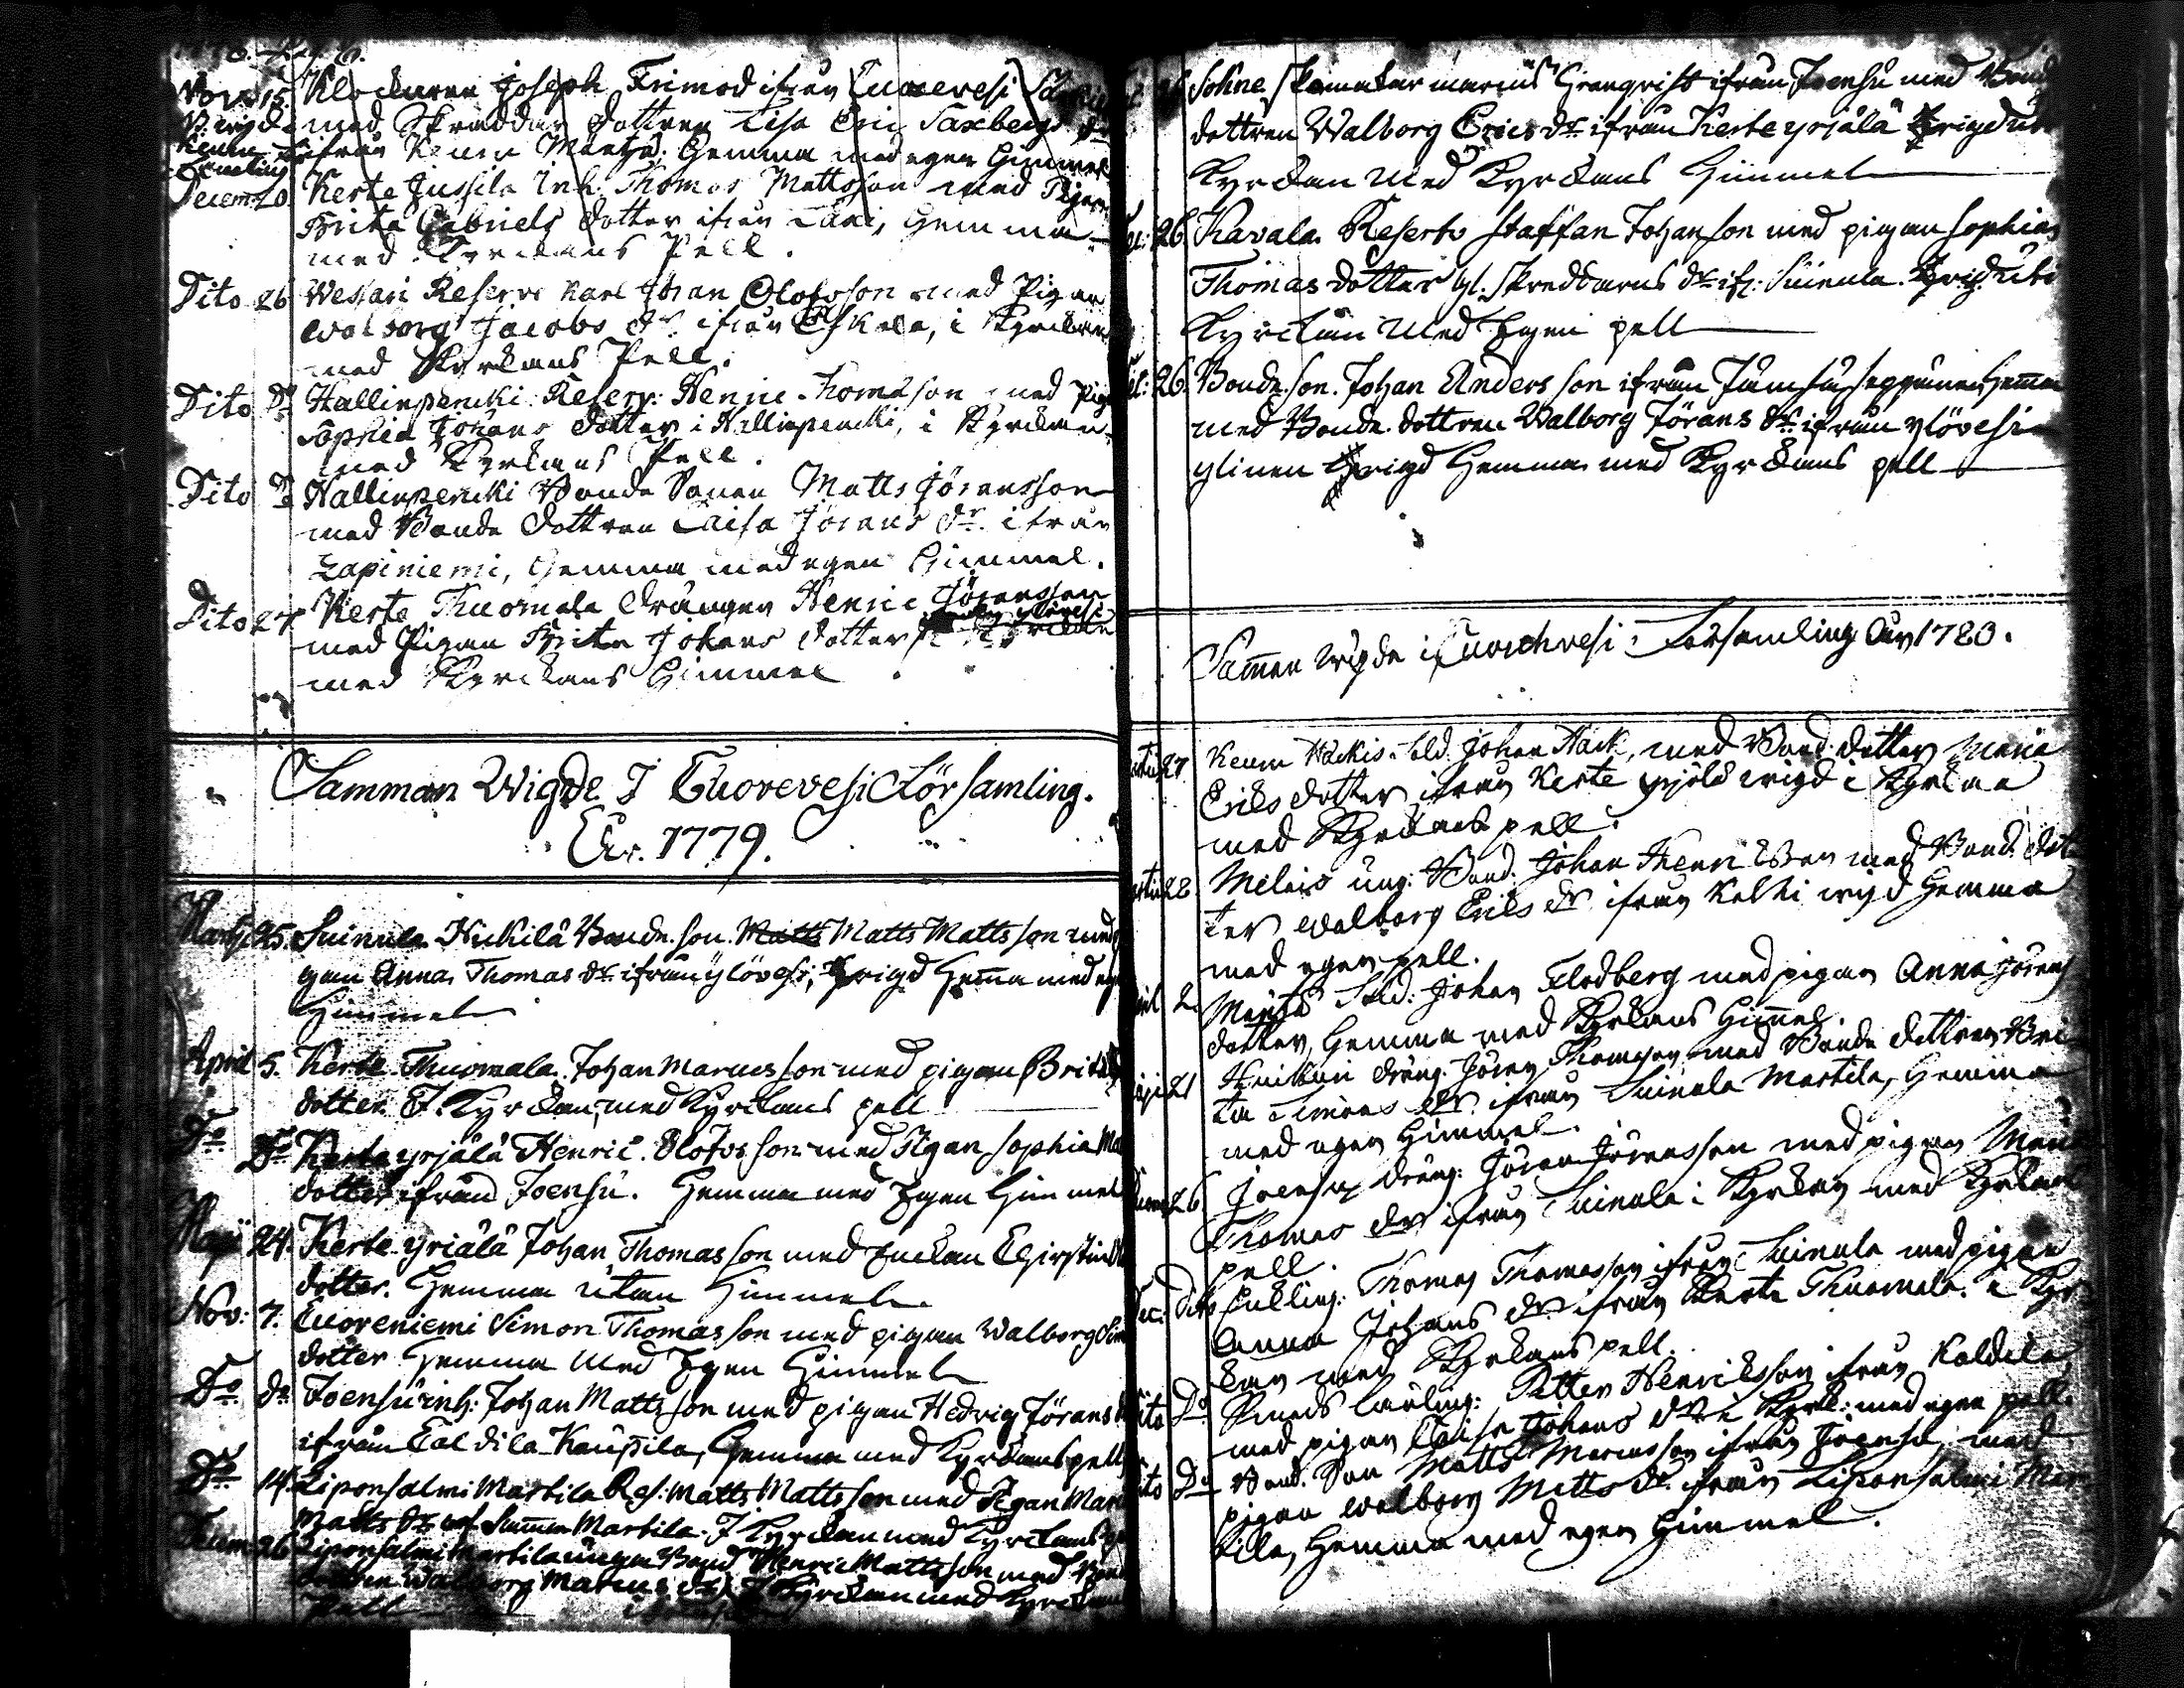 Nov: 15. Klockaren Joseph Frimod ifrån Kuorevesi
med Skraddar dottren Lisa Eric Saxbergs dr
ifrån Keuru Hemma med egen Himmel
Decem: 20. Kerte Jussila Inh. Thomas Mattsson med Pigan
Brita Gabriels dotter ifrån Hemma
med Kyrckans Pell.
Dito 26 Wessari Reserve Karl Johan Olofsson med Pigan
Walborg Jacobs dr. ifrån Eskola, i Kyrckan
med Kyrckans Pell.
Dito Do Hallinpencki Reserv: Henric Thomasson med Pigan
Sophia Johans dotter i Hallinpencki, i Kyrckan
med Kyrckans Pell.
Dito Do Hallinpencki Bonde Sonen Matts Jöransson
med Bonde dottren Caisa Jörans dr. ifrån
Lapiniemi, Hemma med egen Himmel.
Dito 27 Kerte Thuomala drängen Henric Jöransson
med Pigan Brita Johans dotter
med Kyrckans Himmel
Samman Wigde I Kuorevesi Församling.
År. 1779.
Martij 25. Suinula Hukilä Bonde son. Matts Matts Matts son med
gan Anna Thomas dr ifrån ylövesi, wigd Hema med egen
Himmel
April 5. Kerte Thuomala. Johan Marcus son med pigan Brita
dotter. I Kyrckan, med Kyrckans pell
Do Do Kerte yrjälä Henric. Olofvs son med Pigan Sophia
dotter ifrån Joensu. Hemma med Egen Himmel
Maji 24. Kerte yriälä Johan Thomas son med Enckan Chirstin
dotter. Hemma utan Himmel.
Nov: 7. Cuoreniemi Simon Thomas son med pigan Walborg Sim
dotter Hemma med Egen Himmel
Do do Joensu inh: Johan Matts son med pigan Hedvig Jörans
ifrån Caldila Kaupila, Hemma med Kyrckans pell
Do 14. Liponsalmi Martila Res: Matts Matts son med Pigan
Matts dr Martila. I Kyrckan med Kyrckans
Decem 26 Liponsalmi Martila unga Bond Henric Matts son med
Walborg Marcus dr, I Kyrckan med Kyrckans
pell
Sohne, Skomakar marcus Granqvist ifrån Joensu med Bond
dottren Walborg Erics dr. ifrån Kerte yrjälä wigd uti
Kyrckan med Kyrckans Himmel
26. Kavala Reserv Staffan Johanson med pigan Sophia
Thomas dotter gl. Skreddarns dr if: Suinula. wigd uti
Kyrckan med Egen pell
26. Bonde son. Johan Anders son ifrån Jämsä seppänen, Hema
med Bonde dottren Walborg Jörans dr. ifrån ylövesi
ylinen wigd Hemma med Kyrckans pell
Samen wigde i Kuorehvesi Församling År 1780.
27 Keuru Hackis. Sold: Johan Hack, med Bond: dotter Maria
Eriks dotter ifrån Kerte yrjölä wigd i Kyrckan
med Kyrckans pell.
28 Melois ung: Bond: Johan Henriksson med Bond: dot
ter Walborg Eriks dr. ifrån Kolhi wigd Hemma
med egen pell.
2. Mäntä Sold: Johan Flodberg med pigan Anna Jörens
dotter, Hemma med Kyrckans Himel.
21 dräng: Jören Thomson med Bonde dottren Bri
ta Simons dr. ifrån Suinula Martila, Hemma
med egen Himmel.
26 Joensu dräng: Jören Jörensson med pigan
Thomas dr ifrån Suinula i Kyrckan med Kyrckans
pell.
Dec: Dito Enkling: Thomas Thomasson ifrån Suinula med pigan
Anna Johans dr ifrån Kerte Thuomala. i Kyr
kan med Kyrckans pell.
Dito Do Smeds lärling: Petter Henriksson ifrån Koldila
med pigan Caisa Johans dr. i Kyrk: med egen pell.
Dito Do Bond. Son Matts Marcusson ifrån Joensu, med
pigan Walborg Matts dr. ifrån Liponsalmi Mar
tila, Hemma med egen Himmel.